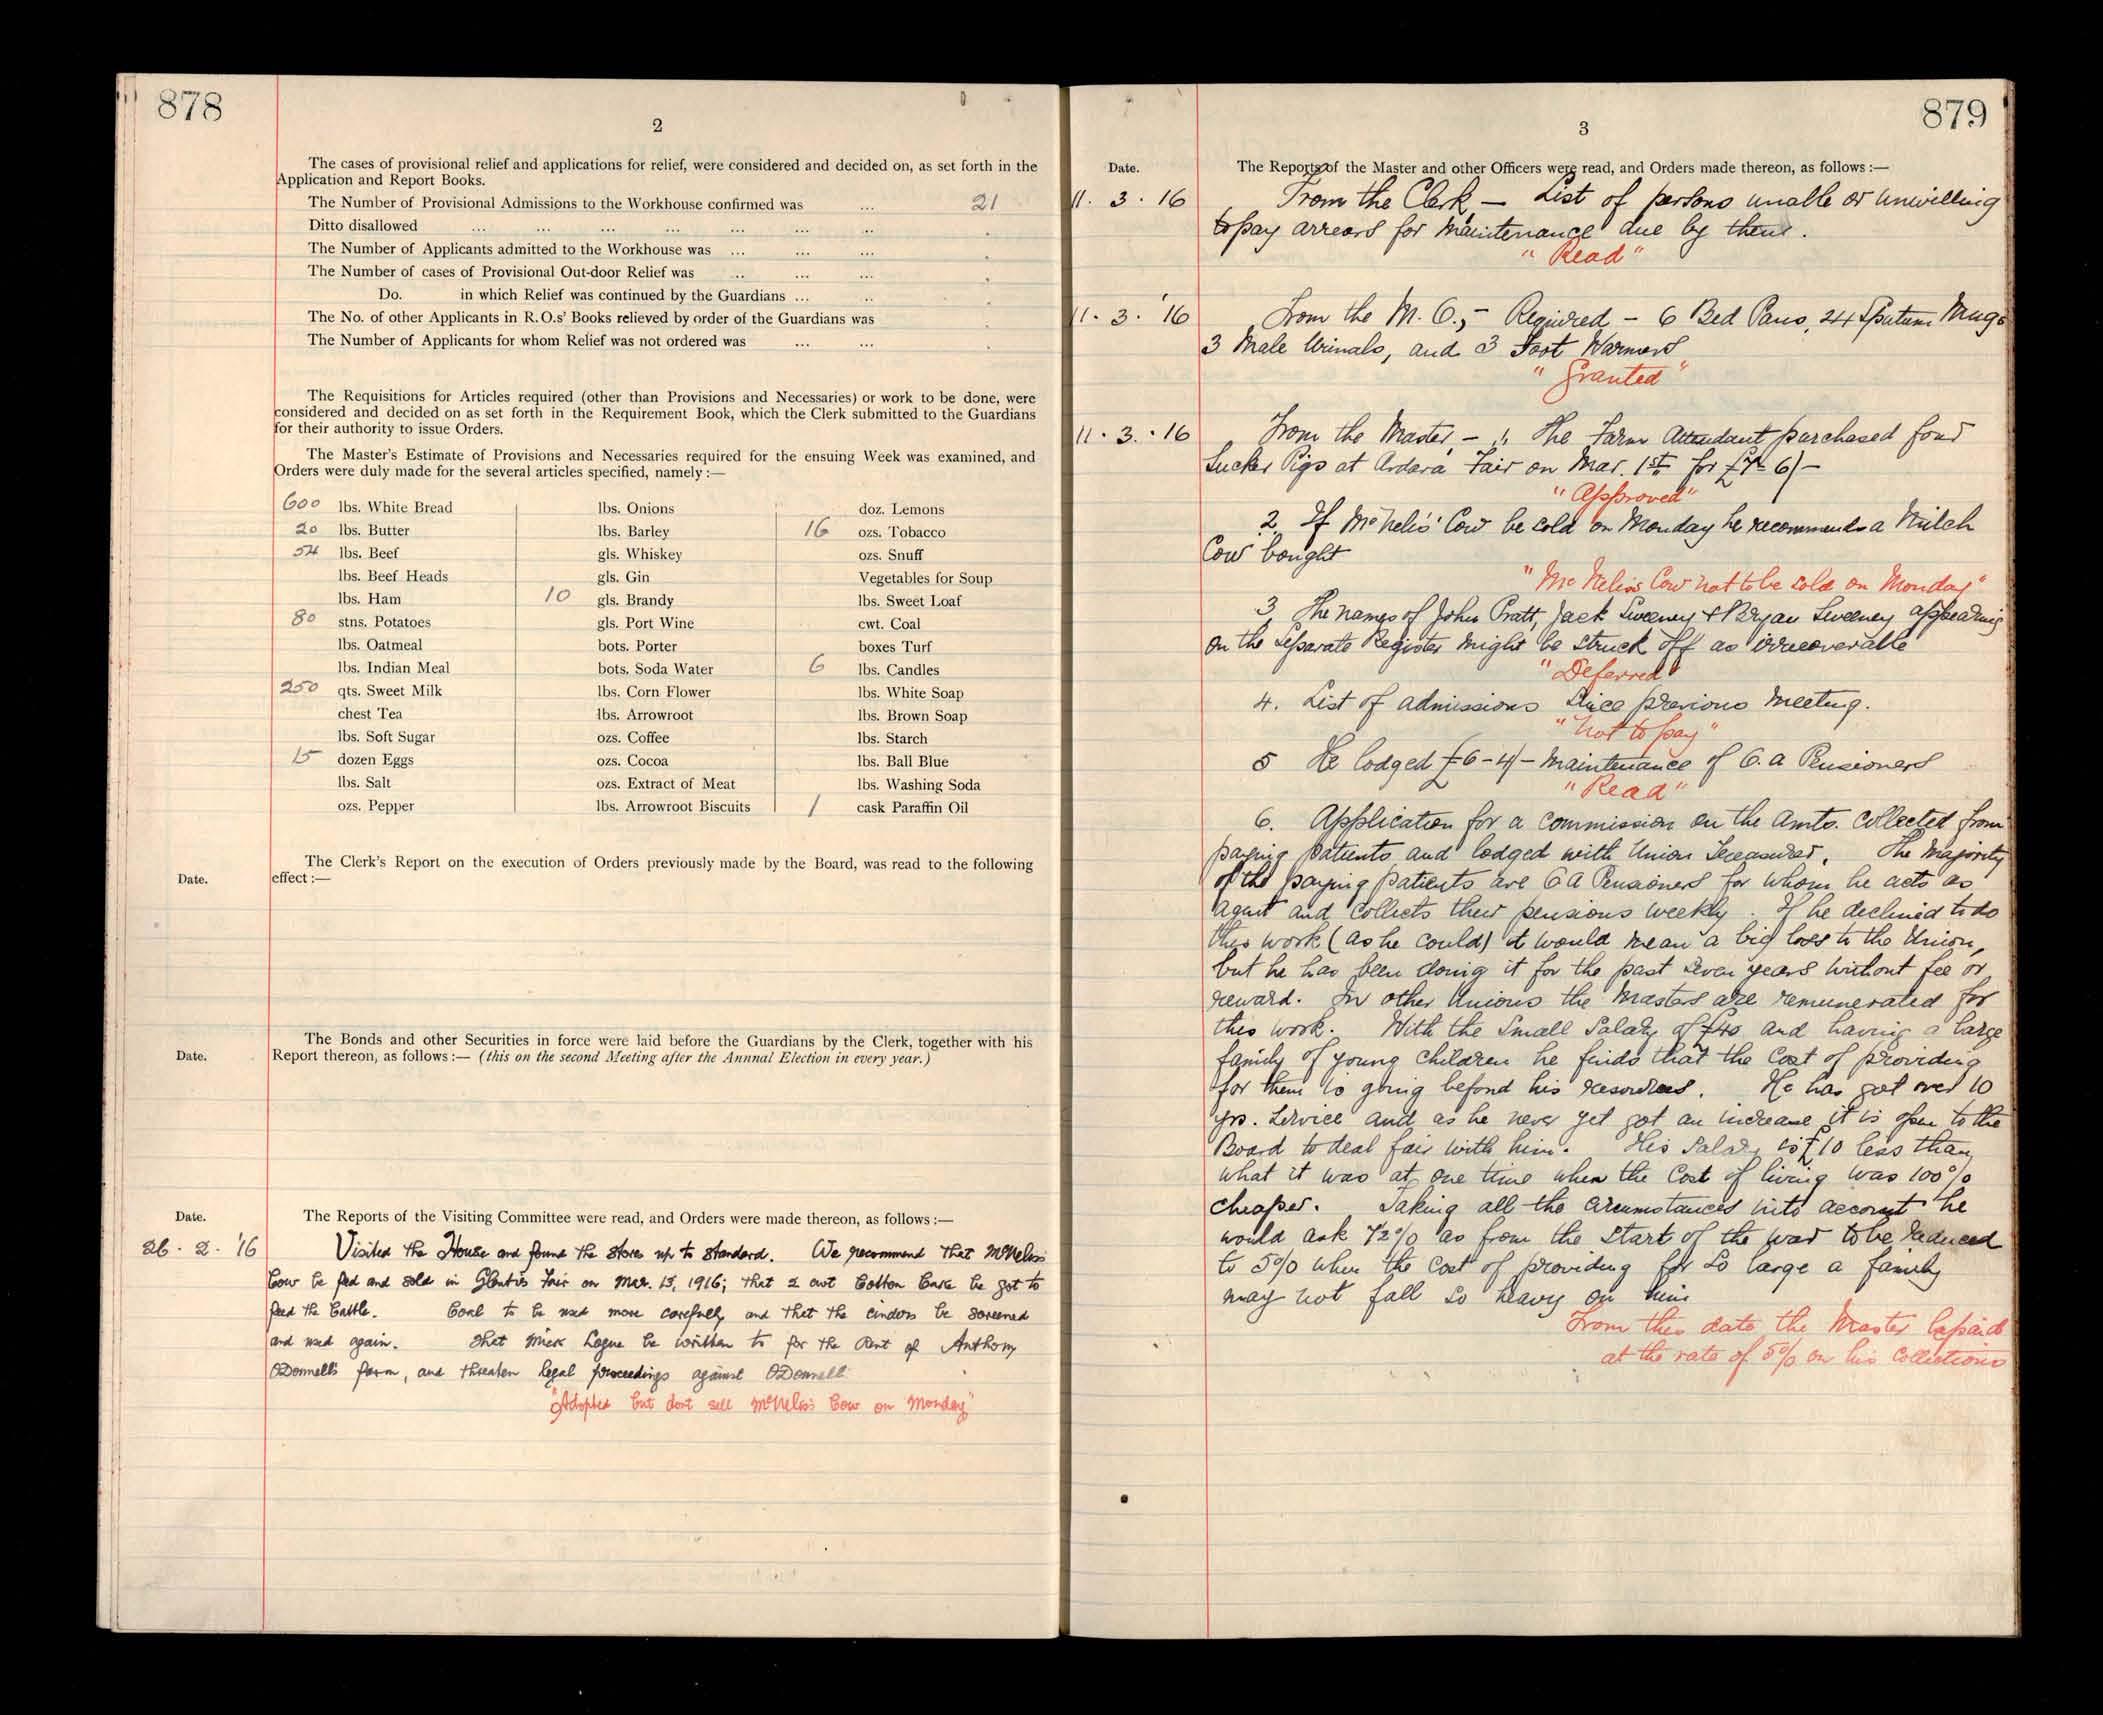 878
2
The cases of provisional relief and applications for relief, were considered and decided on, as set forth in the
Application and Report Books.
The Number of Provisional Admissions to the Workhouse confirmed was ... 21
Ditto disallowed ... ... ... ... ... ... ...
The Number of Applicants admitted to the Workhouse was ... ... ...
The Number of cases of Provisional Out-door Relief was ... ... ...
Do. in which Relief was continued by the Guardians ... ..
The No. of other Applicants in R.O.s' Books relieved by order of the Guardians was
The Number of Applicants for whom Relief was not ordered was ... ...
The Requisitions for Articles required (other than Provisions and Necessaries) or work to be done, were
considered and decided on as set forth in the Requirement Book, which the Clerk submitted to the Guardians
for their authority to issue Orders.
The Master's Estimate of Provisions and Necessaries required for the ensuing Week was examined, and
Orders were duly made for the several articles specified, namely :—
600 lbs. White Bread
20 lbs. Butter
54 lbs. Beef
lbs. Beef Heads
lbs. Ham
80 stns. Potatoes
lbs. Oatmeal
lbs. Indian Meal
250 qts. Sweet Milk
chest Tea
lbs. Soft Sugar
15 dozen Eggs
lbs. Salt
ozs. Pepper
lbs. Onions
lbs. Barley
gls. Whiskey
gls. Gin
10 gls. Brandy
gls. Port Wine
bots. Porter
bots. Soda Water
lbs. Corn Flower
lbs. Arrowroot
ozs. Coffee
ozs. Cocoa
ozs. Extract of Meat
lbs. Arrowroot Biscuits
doz. Lemons
16 ozs. Tobacco
ozs. Snuff
Vegetables for Soup
lbs. Sweet Loaf
cwt. Coal
boxes Turf
6 lbs. Candles
lbs. White Soap
lbs. Brown Soap
lbs. Starch
lbs. Ball Blue
lbs. Washing Soda
1 cask Paraffin Oil
The Clerk's Report on the execution of Orders previously made by the Board, was read to the following
Date. effect :—
The Bonds and other Securities in force were laid before the Guardians by the Clerk, together with his
Date. Report thereon, as follows :— (this on the second Meeting after the Annnal Election in every year.)
Date. The Reports of the Visiting Committee were read, and Orders were made thereon, as follows :—
26 . 2 . '16 Visited the House and found the stores up to standard. We recommend that McNelis's
Cow be fed and sold in Glenties Fair on Mar. 13, 1916; that 2 cwt Cotton Cake be got to
feed the Cattle. Coal to be used more carefully and that the cinders be screened
and used again. That Mick Logue be written to for the Rent of Anthony
O'Donnell's farm, and threaten legal proceedings against O'Donnell
"Adopted but dont sell McNelis's Cow on Monday"
879
3
Date. The Reports of the Master and other Officers were read, and Orders made thereon, as follows :—
11 . 3 . 16 From the Clerk — List of persons unable or unwilling
to pay arrears for Maintenance due by them.
"Read"
11 . 3 . '16 From the M. O., — Required — 6 Bed Pans, 24 Sputum Mugs
3 Male Urinals, and 3 Foot Warmers
"Granted"
11 . 3 . 16 From the Master, — 1, The Farm Attendant purchased four
Sucker Pigs at Ardara Fair on Mar. 1st for £7- 6/-
"Approved"
2, If McNelis' Cow be sold on Monday he recommends a Milch
Cow bought
"McNelis's Cow not to be sold on Monday"
3, The names of John Pratt, Jack Sweeney & Bryan Sweeney appearing
on the Separate Register might be struck off as irrecoverable
"Deferred"
4. List of admissions since previous Meeting.
"Not to pay"
5 He lodged £6-4/- Maintenance of O.A Pensioners
"Read"
6. Application for a commission on the Amts. collected from
paying patients and lodged with Union Treasurer. The Majority
of the paying patients are O A Pensioners for whom he acts as
Agent and collects their pensions weekly. If he declined to do
this work (as he could) it would mean a big loss to the Union,
but he has been doing it for the past seven years without fee or
reward. In other Unions the Masters are remunerated for
this work. With the Small Salary of £40 and having a large
family of young children he finds that the cost of providing
for them is going beyond his resources. He has got over 10
yrs. service and as he never yet got an increase it is open to the
Board to deal fair with him. His Salary is £10 less than
what it was at one time when the cost of living was 100%
cheaper. Taking all the circumstances into account he
would ask 7½% as from the start of the war to be reduced
to 5% when the cost of providing for so large a family
may not fall so heavy on him
From this date the Master be paid
at the rate of 5% on his collections